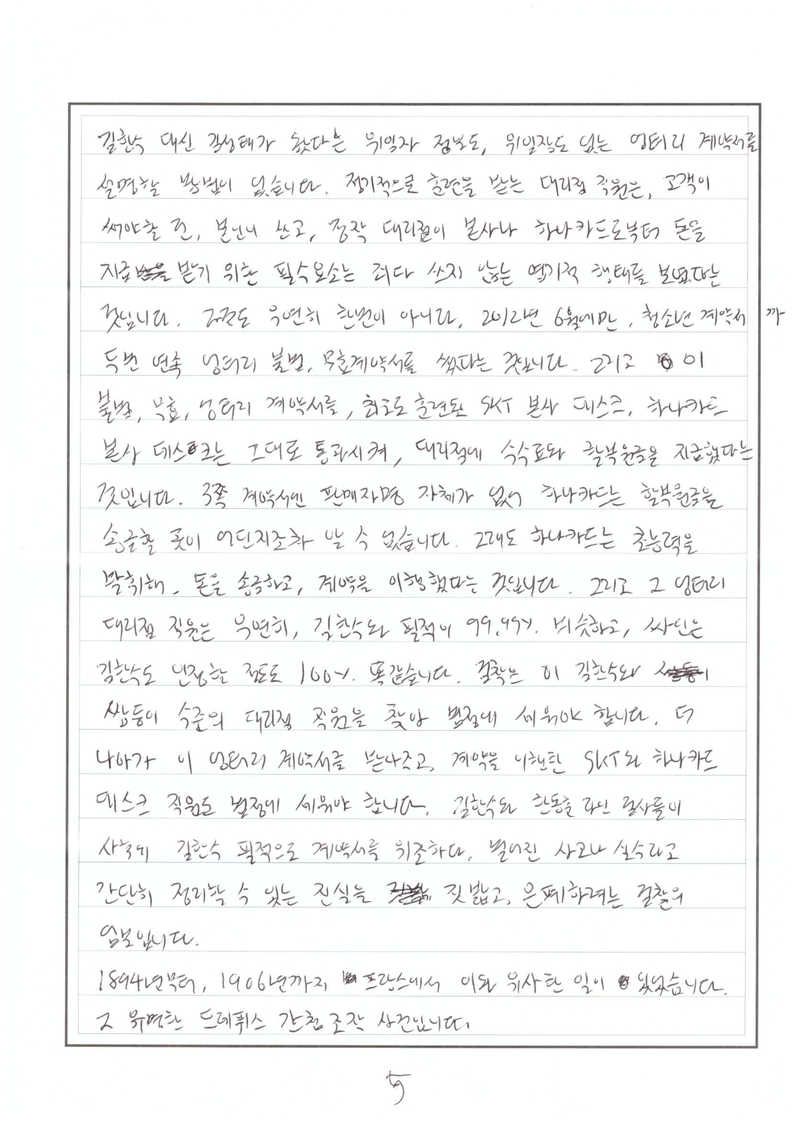 김한수 대신 김성태가 왔다는 위임자 정보도, 위임장도 없는 엉터리 계약서를
설명할 방법이 없습니다. 정기적으로 훈련을 받는 대리점 직원은, 고객이
써야할 건, 본인이 쓰고, 정작 대리점이 본사나 하나카드로부터 돈을
지급 받기 위한 필수요소는 죄다 쓰지 않는 엽기적 행태를 보였다는
것입니다. 그것도 우연히 한번이 아니라, 2012년 6월에만, 청소년 계약서 까
두번 연속 엉터리 불법, 무효계약서를 썼다는 것입니다. 그리고 이
불법, 무효, 엉터리 계약서를, 최고로 훈련된 SKT 본사 데스크, 하나카드
본사 데스크는 그대로 통과시켜, 대리점에 수수료와 할부원금을 지급했다는
것입니다. 3쪽 계약서엔 판매자명 자체가 없어 하나카드는 할부원금을
송금할 곳이 어딘지조차 알 수 없습니다. 그래도 하나카드는 초능력을
발휘해, 돈을 송금하고, 계약을 이행했다는 것입니다. 그리고 그 엉터리
대리점 직원은 우연히, 김한수와 필적이 99.99% 비슷하고, 싸인은
김한수도 인정할 정도로 100% 똑같습니다. 검찰은 이 김한수와
쌍둥이 수준의 대리점 직원을 찾아 법정에 세워야 합니다. 더
나아가 이 엉터리 계약서를 받아주고, 계약을 이행한 SKT와 하나카드
데스크 직원도 법정에 세워야 합니다. 김한수와 한동훈 라인 검사들이
사후에 김한수 필적으로 계약서를 위조하다, 벌어진 사고나 실수라고
간단히 정리할 수 있는 진실을 짓밟고, 은폐하려는 검찰의
음모입니다.
1894년부터, 1906년까지 프랑스에서 이와 유사한 일이 있었습니다.
그 유명한 드레퓌스 간첩조작 사건입니다.
5